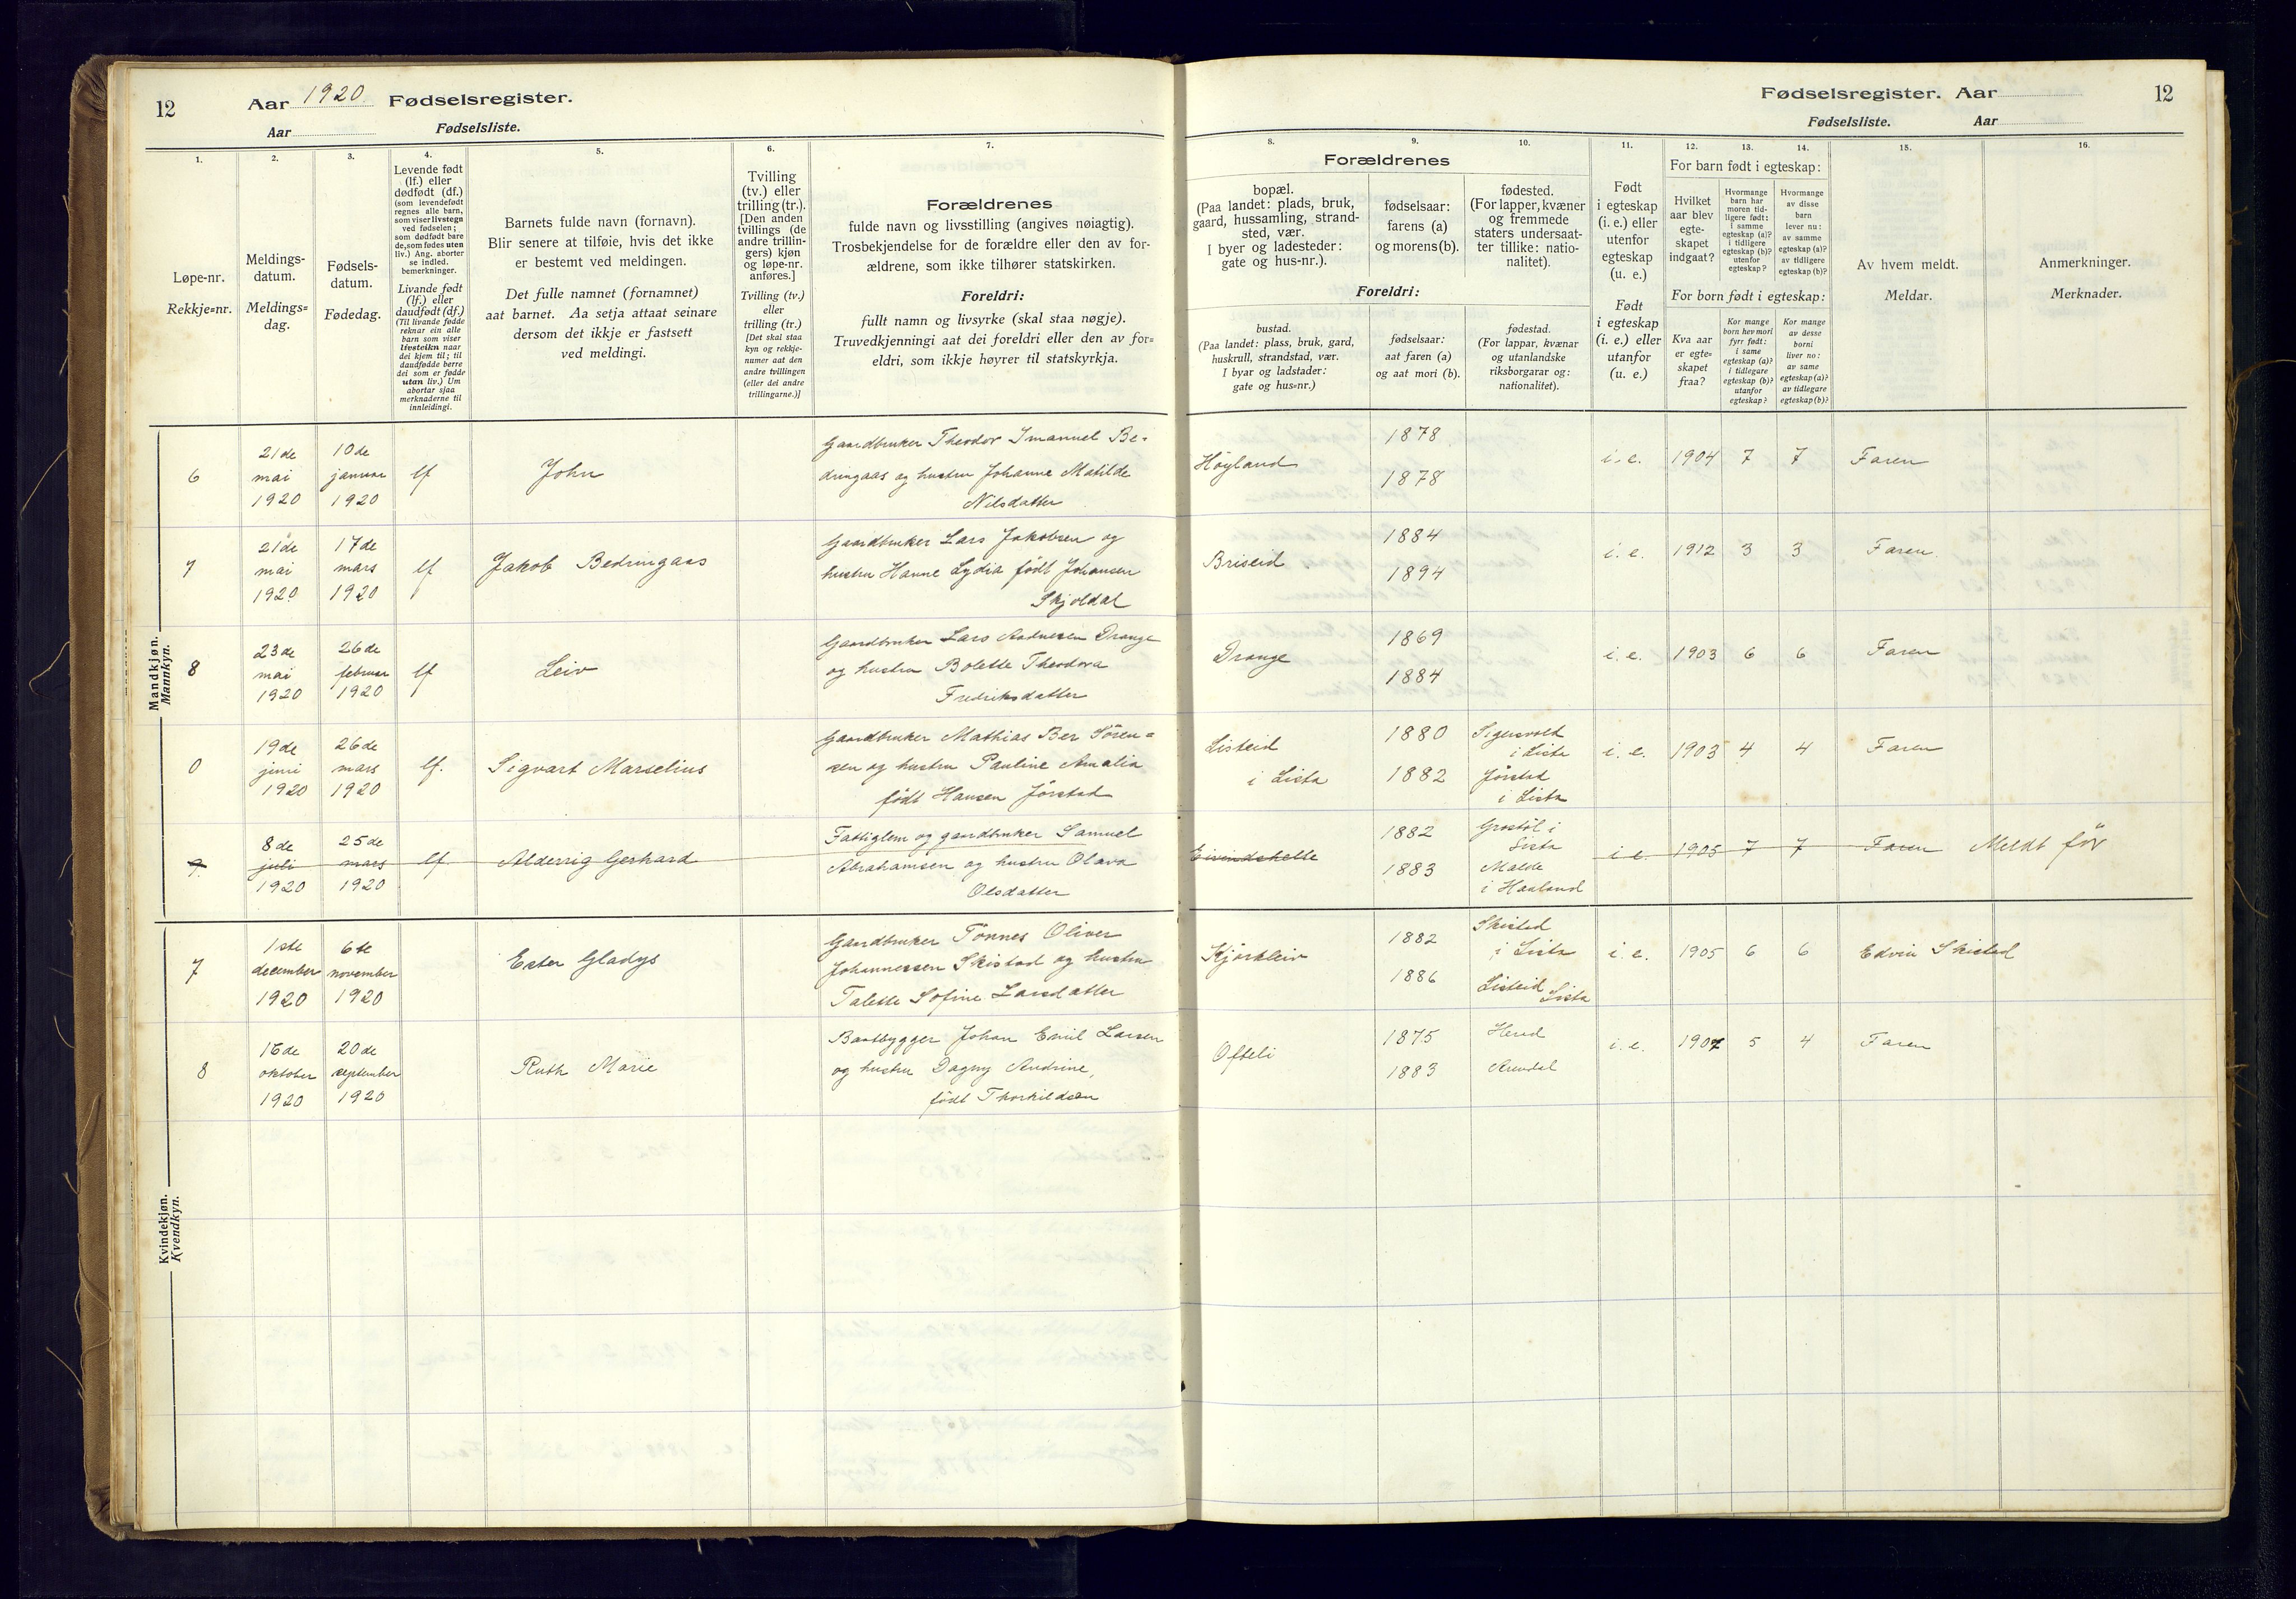 12
Aar 1920 Fødselsregister.
Aar Fødselsliste.
1.
Løpe-nr.
Rekkje=nr.
2.
Meldings-
datum.
Meldings=
dag.
3.
Fødsels-
datum.
Fødedag.
4.
Levende født
(lf.) eller
dødfødt (df.)
(som levendefødt
regnes alle barn,
som viser livstegn
ved fødselen;
som dødfødt bare
de, som fødes uten
liv.) Ang. aborter
se indled.
bemerkninger.
Livande født
(lf.) eller
daudfødt (df.)
(Til livande fødde
reknar ein alle
barn som viser
livsteikn naar
dei kjem til; til
daudfødde berre
dei som er fødde
utan liv.) Um
abortar sjaa
merknaderne til
innleidingi.
5.
Barnets fulde navn (fornavn).
Blir senere at tilføie, hvis det ikke
er bestemt ved meldingen.
Det fulle namnet (fornamnet)
aat barnet. Aa setja attaat seinare
dersom det ikkje er fastsett
ved meldingi.
6.
Tvilling
(tv.) eller
trilling (tr.).
[Den anden
tvillings (de
andre trillin-
gers) kjøn
og løpe-nr.
anføres.]
Tvilling (tv.)
eller
trilling (tr.)
[Det skal staa
kyn og rekkje-
numer aat den
andre tvillingen
(eller dei andre
trillingarne.)]
7.
Forældrenes
fulde navn og livsstilling (angives nøiagtig).
Trosbekjendelse for de forældre eller den av for-
ældrene, som ikke tilhører statskirken.
Foreldri:
fullt namn og livsyrke (skal staa nøgje).
Truvedkjenningi aat dei foreldri eller den av for=
eldri, som ikkje høyrer til statskyrkja.
Mandkjøn.
Mannkyn.
6
21de
mai
1920
10de
januar
1920
lf
John
Gaardbruker Theodor Imanuel Be-
dringaas og hustru Johanne Matilde
Nilsdatter
7
21de
mai
1920
17de
mars
1920
lf
Jakob Bedringaas
Gaardbruker Lars Jakobsen og
hustru Hanne Lydia født Johansen
Skjoldal
8
23de
mai
1920
26de
februar
1920
lf
Leiv
Gaardbruker Lars Aadnesen Drange
og hustru Bolette Theodora
Fredriksdatter
0
19de
juni
1920
26de
mars
1920
lf.
Sigvart Marselius
Gaardbruker Mathias Ber Sören=
sen og hustru Pauline Amalia
født Hansen Jørstad
9.
8de
juli
1920
25de
mars
1920
lf
Alderrig Gerhard
Fattiglem og gaardbruker Samuel
Abrahamsen og hustru Olava
Olsdatter
Kvindekjøn.
Kvendkyn.
7
1ste
december
1920
6te
november
1920
Ester Gladys
Gaardbruker Tönnes Oliver
Johannessen Skistad og hustru
Talette Sofine Larsdatter
8
16de
oktober
1920
20de
september
1920
Ruth Marie
Baatbygger Johan Emil Larsen
og hustru Dagny Andrine,
født Thorkildsen
Fødselsregister. Aar 12
Fødselsliste. Aar
Forældrenes
8.
bopæl.
(Paa landet: plads, bruk,
gaard, hussamling, strand-
sted, vær.
I byer og ladesteder:
gate og hus-nr.).
9.
fødselsaar:
farens (a)
og morens (b).
10.
fødested.
(For lapper, kvæner
og fremmede
staters undersaat-
ter tillike: natio-
nalitet).
Foreldri:
bustad.
(Paa landet: plass, bruk, gard,
huskrull, strandstad, vær.
I byar og ladstader:
gate og hus=nr.)
fødselsaar:
aat faren (a)
og aat mori (b).
fødestad.
(For lappar, kvænar
og utanlandske
riksborgarar og:
nationalitet).
11.
Født
i egteskap
(i. e.) eller
utenfor
egteskap
(u. e.)
Født
i egteskap
(i. e.) eller
utanfor
(u. e.)
12. 13. 14.
For barn født i egteskap:
Hvilket
aar blev
egte-
skapet
indgaat?
Hvormange
barn har
moren tid-
ligere født:
i samme
egteskap (a)?
i tidligere
egteskap (b)?
utenfor
egteskap?
Hvormange
av disse
barn
lever nu:
av samme
egteskap (a)?
av tidligere
egteskap (b)?
For born født i egteskap:
Kva aar
er egte=
skapet
fraa?
Kor mange
born hev mori
fyrr født:
i same
egteskap (a)?
i tidlegare
egteskap (b)?
utanfor
egteskap?
Kor mange
av desse
borni
liver no:
av same
egteskap (a)?
av tidlegare
egteskap (b)?
15.
Av hvem meldt.
Meldar.
16.
Anmerkninger.
Merknader.
Höyland
1878
1878
i. e. 1904 7 7 Faren
Briseid
1884
1894
i. e. 1912 3 3 Faren.
Drange
1869
1884
i. e. 1903 6 6 Faren
Listeid
i Lista
1880
1882
Sigersvolt
i Lista
Jørstad
i Lista
i. e. 1903 4 4 Faren
Eivindshelle
1882
1883
Grostøl i
Lista
Malde
i Haaland
i e. 1905 7 7 Faren Meldt för
Kjörkleiv
1882
1886
Skistad
i Lista
Listeid
Lista
i. e. 1905 6 6 Edvin Skistad
Ofteli
1875
1883
Herad
Arendal
i. e. 1907 5 4 Faren